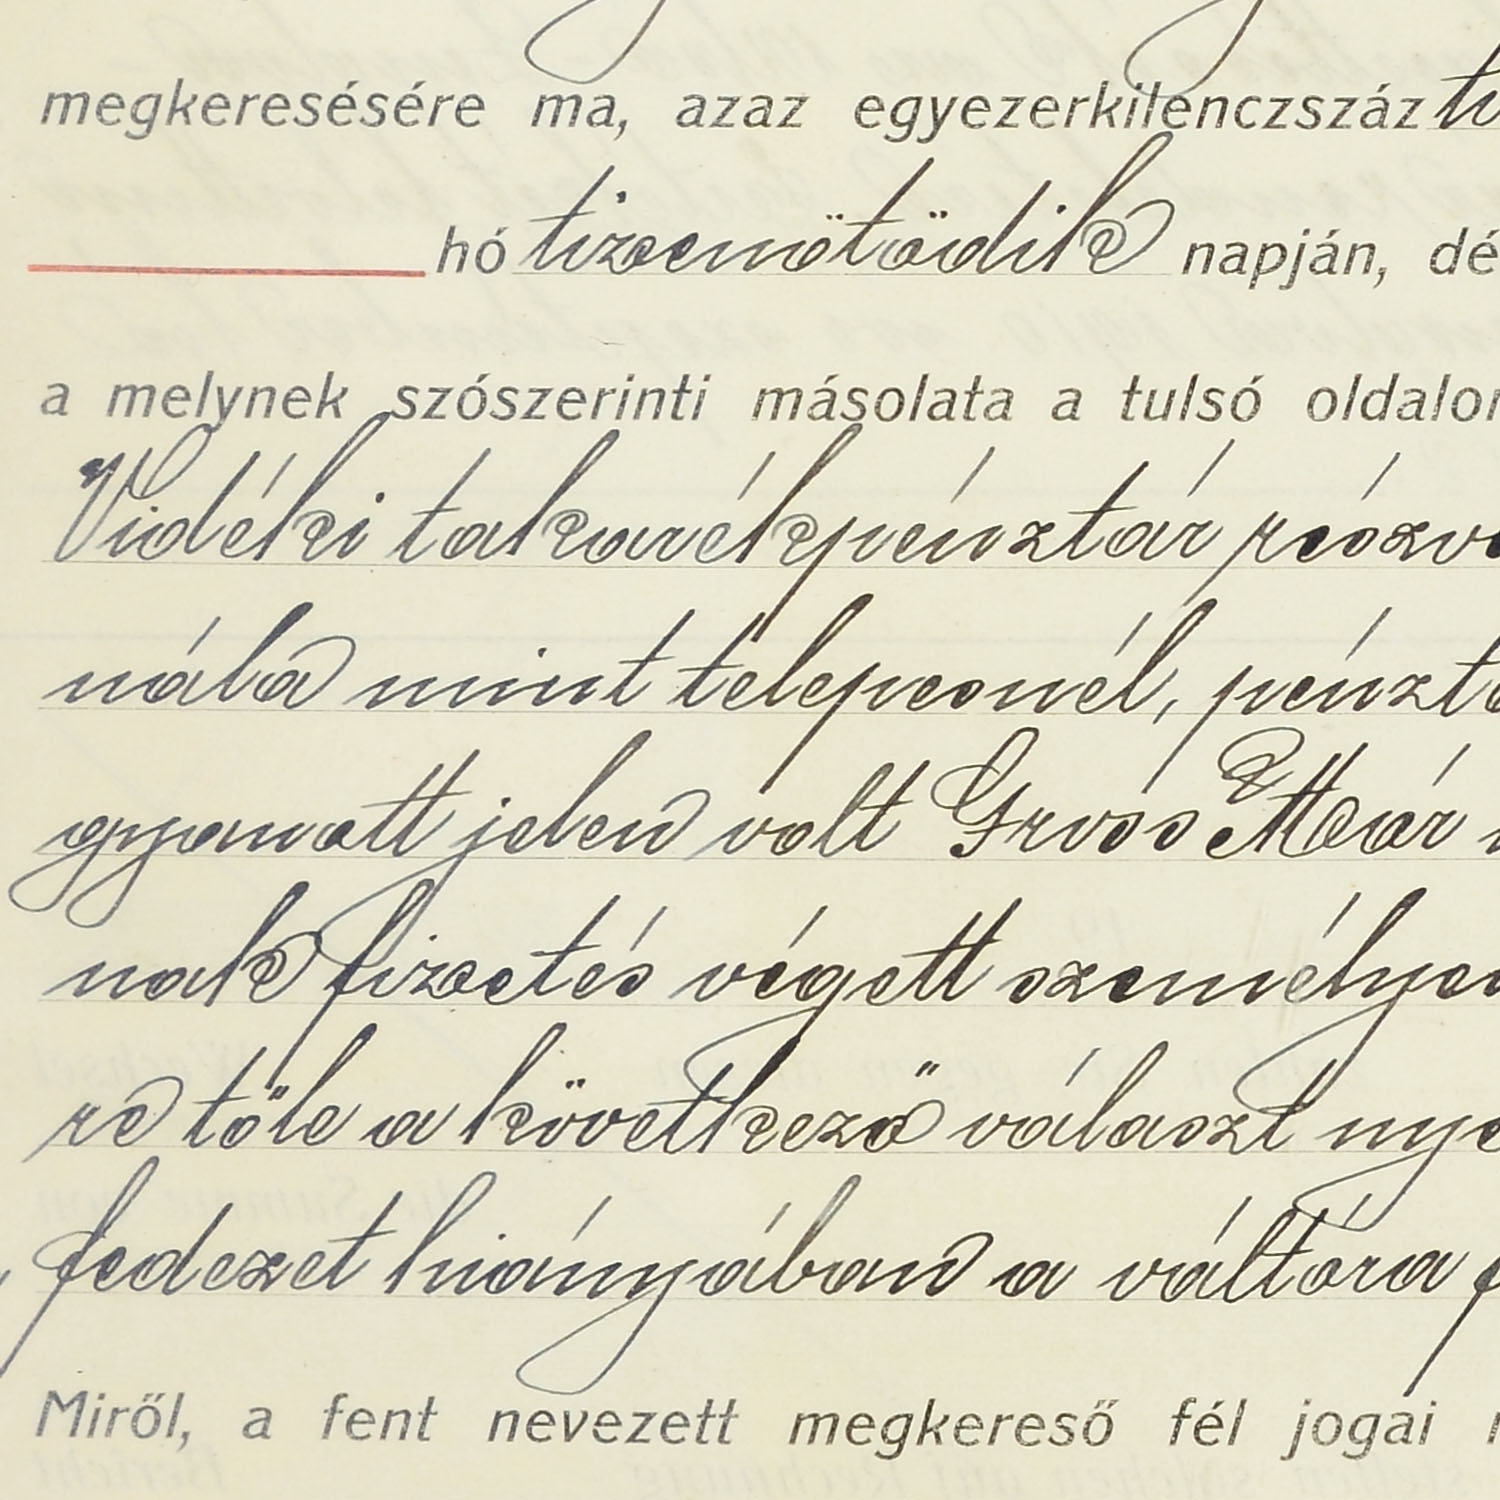 megkeresésére ma, azaz egyezerkilenczszáz
hó tizenötödik napján, dé
a melynek szószerinti másolata a tulsó oldalon
Vidéki takarékpénztár részv
nála mint telepesnél, pénztá
gyanott jelen volt Gross Mór
nak fizetés végett személyes
re tőle a következő választ nye
fedezet hiányában a váltóra f
Miről, a fent nevezett megkereső fél jogai